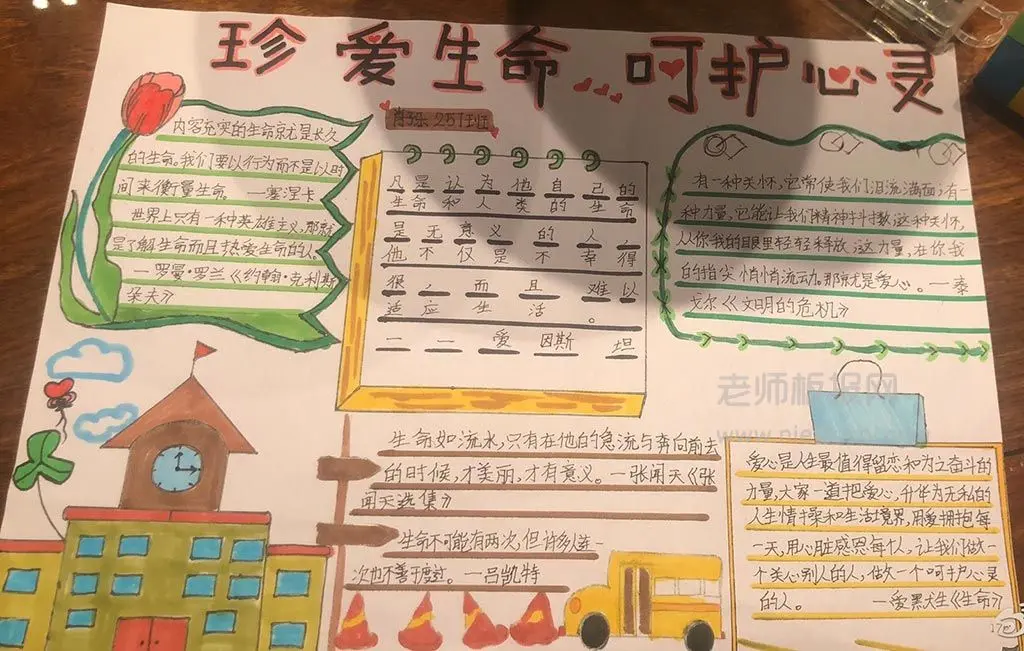 珍爱生命 呵护心灵
肖孙 251班
内容充实的生命就是长久
的生命。我们要以行为而不是以时
间来衡量生命。 —塞涅卡
世界上只有一种英雄主义,那就
是了解生命而且热爱生命的人。
—罗曼·罗兰《约翰·克利斯
朵夫》
凡是认为他自己的
生命和人类的生命
是无意义的人,
他不仅是不幸得
很,而且难以
适应生活。
一一爱因斯坦
有一种关怀,它常使我们泪流满面;有一
种力量,它能让我们精神抖擞;这种关怀,
从你我的眼里轻轻释放;这力量,在你我
的指尖悄悄流动。那就是爱心。—泰
戈尔《文明的危机》
生命如流水,只有在他的急流与奔向前去
的时候,才美丽,才有意义。—张闻天《张
闻天选集》
生命不可能有两次,但许多人连一
次也不善于度过。—吕凯特
爱心是人生最值得留恋和为之奋斗的
力量,大家一道把爱心,升华为无私的
人生情操和生活境界,用爱拥抱每
一天,用心脏感恩每个人,让我们做一
个关心别人的人,做一个呵护心灵
的人。 —爱默生《生命》
老师板报网